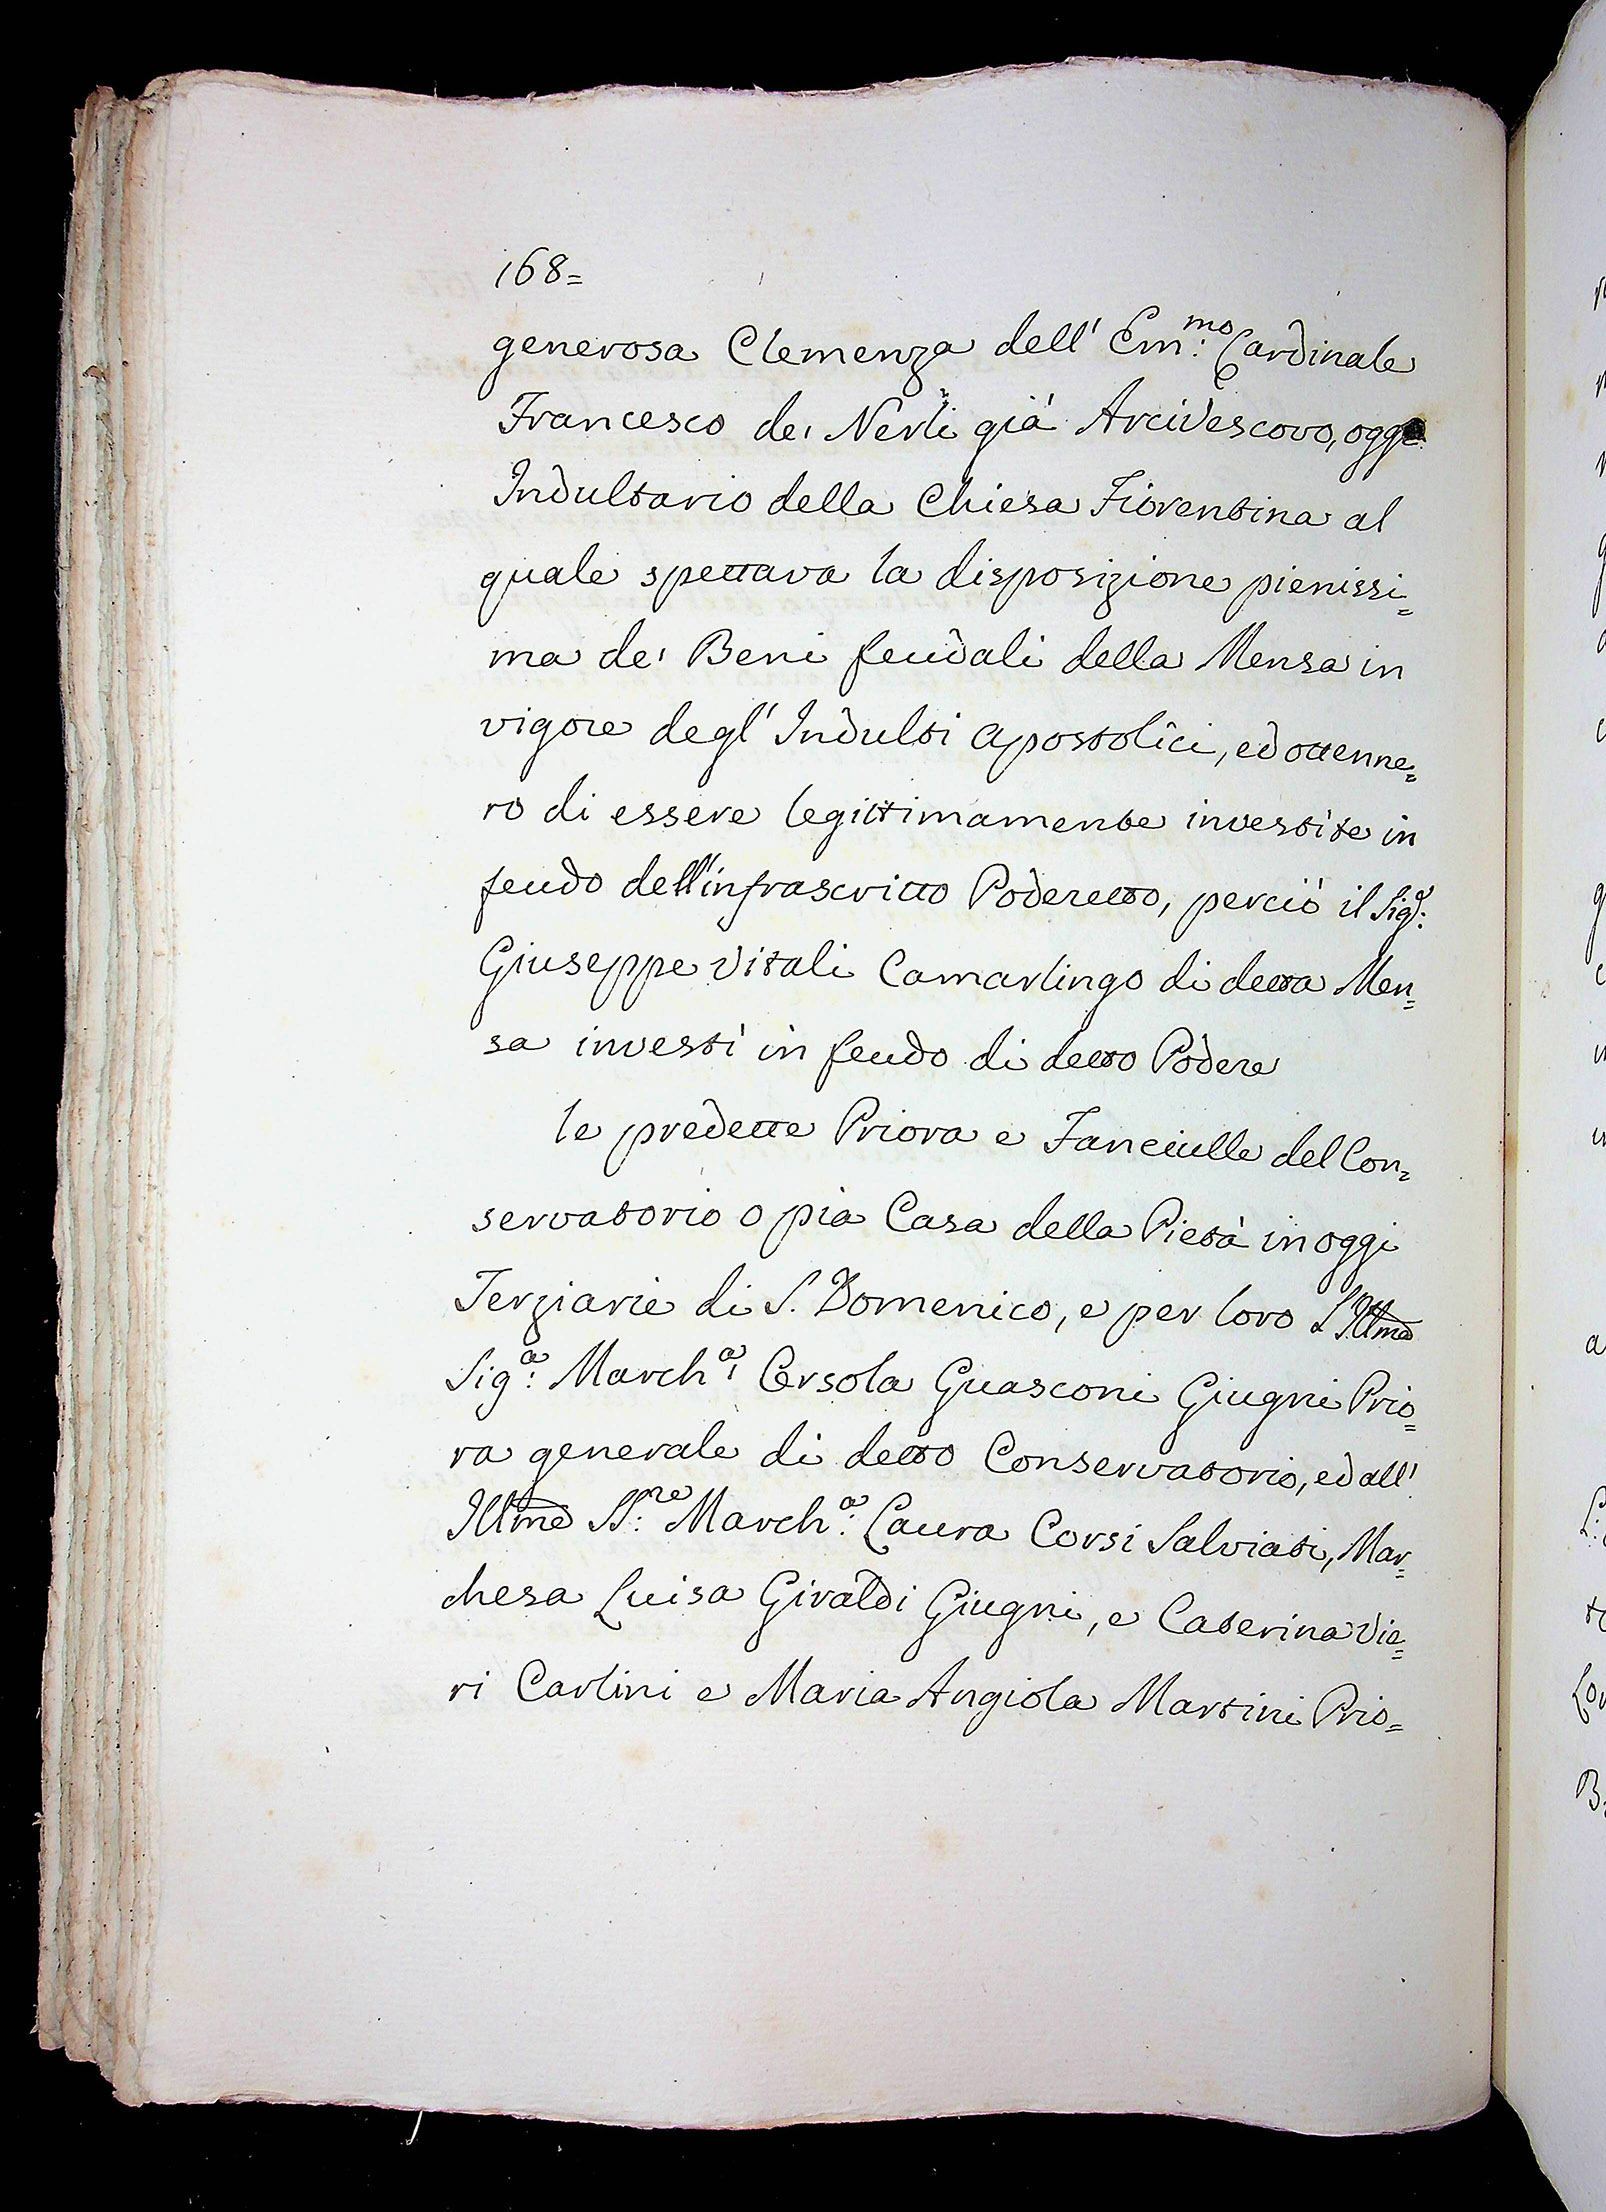 168=
generosa Clemenza dell' Em:mo Cardinale
Francesco de' Nerli già Arcivescovo, oggi
Indultario della Chiesa Fiorentina al
quale spettava la disposizione pienissi=
ma de' Beni feudali della Mensa in
vigore degl' Indulti apostolici, ed ottenne=
ro di essere legittimamente investite in
feudo dell'infrascritto Poderetto, perciò il Sigr:
Giuseppe Vitali Camarlingo di detta Men=
sa investì in feudo di detto Podere
le predette Priora e Fanciulle del Con=
servatorio o pia Casa della Pietà in oggi
Terziarie di S. Domenico, e per loro L'Illma
Sig:a March:a Ursola Guasconi Giugni Prio=
ra generale di detto Conservatorio, ed all'
Illme SS:re March:a Laura Corsi Salviati, Mar=
chesa Luisa Giraldi Giugni, e Caterina Vie=
ri Carlini e Maria Angiola Martini Prio=